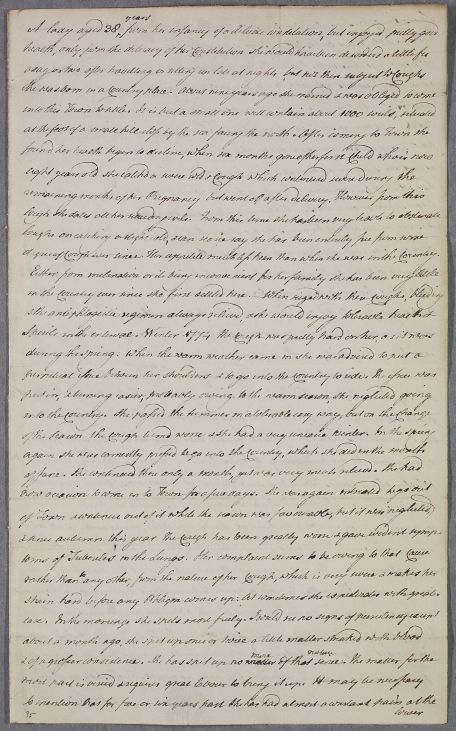 years
A Lady aged 38, from her infancy of a delicate constitution, but enjoyed pretty good
health, only from the delicacy of her Constitution she would have been disordered a little for
a day or two after handling or sitting up late at nights but not then subject to Coughs
She was born in a Country place. About nine years ago she married & was obliged to come
into this Town to live. It is but a small one will contain about 1000 souls, situated
at the foot of a small hill close by the sea facing the north. After coming to Town she
found her health begin to decline, when six months gone of her first Child who is now
eight years old she catched a severe cold & Cough which continued severe during the
remaining months of her Pregnancy but went off after delivery. However from this
Cough she dates all her succeeding evils. From this time she has been very liable to obstinate
Coughs on catching a slight cold, & can scarce say she has been entirely free from some
degree of Cough ever since. Her appetite much less than when she was in the Country.
Either from inclination or its being inconvenient for her family she has been very little
in the Country ever since she first settled here. When seized with these Coughs, bleeding
& the antiphlogistic regimen always relieved & she would enjoy tolerable health
Spirits in the interval. Winter 1774 the Cough was pretty hard on her, as it was
during the spring. When the warm weather came in she was advised to put a
perpetual Issue between her shoulders & to go into the Country to ride. The Issue was
put in, & turning easier, probably owing to the warm season, she neglected going
into the Country. She passed the summer in a tolerable easy way, but on the Change
of the season the Cough turned worse & she had a very uneasie winter. In the spring
again she was earnestly pressed to go into the Country, which she did in the month
of June. She continued there only a month, yet was very much relieved. She had
now occasion to come in to Town for a few days. She was again intreated to go out
of Town & continue out of it while the season was favourable, but it was neglected
& since autumn this year the Cough has been greatly worse & gave evident symp-
toms of Tubercles in the lungs. Her complaint seems to be owing to that Cause
rather than to any other from the nature of her Cough, which is very severe & makes her
strain hard before any Phlegm comes up: At sometimes she expectorates with great
ease. In the mornings she spits most freely. I could see no signs of purulency except
about a month ago, she spit up once or twice a little matter streaked with blood
& of a grosser consistence. She has spit up no more of that nature since. The matter for the
most part is viscid & requires great labour to bring it up. It may be necessary
to mention that for five or six years past she has had almost a constant pain at the
lower